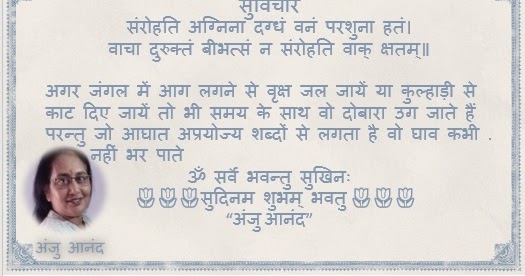 सुविचार
संरोहति अग्निना दग्धं वनं परशुना हतं।
वाचा दुरुक्तं बीभत्सं न संरोहति वाक् क्षतम्॥
अगर जंगल में आग लगने से वृक्ष जल जायें या कुल्हाड़ी से
काट दिए जायें तो भी समय के साथ वो दोबारा उग जाते हैं
परन्तु जो आघात अप्रयोज्य शब्दों से लगता है वो घाव कभी .
नहीं भर पाते
ॐ सर्वे भवन्तु सुखिनः
🌷🌷🌷सुदिनम शुभम् भवतु🌷🌷🌷
“अंजु आनंद”
अंजु आनंद